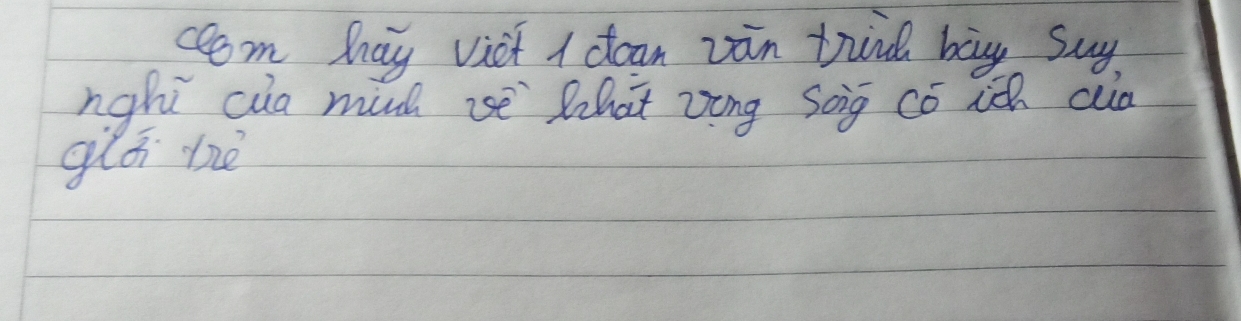 Em hãy viết 1 đoạn văn trình bày suy
nghĩ của mình về khát vọng sống có ích của
giới trẻ